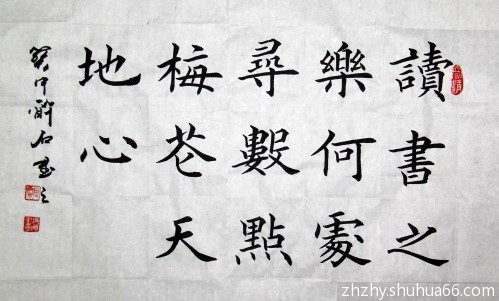 讀書之
樂何處
尋數點
梅花天
地心
zhzhy.shuhua66.com